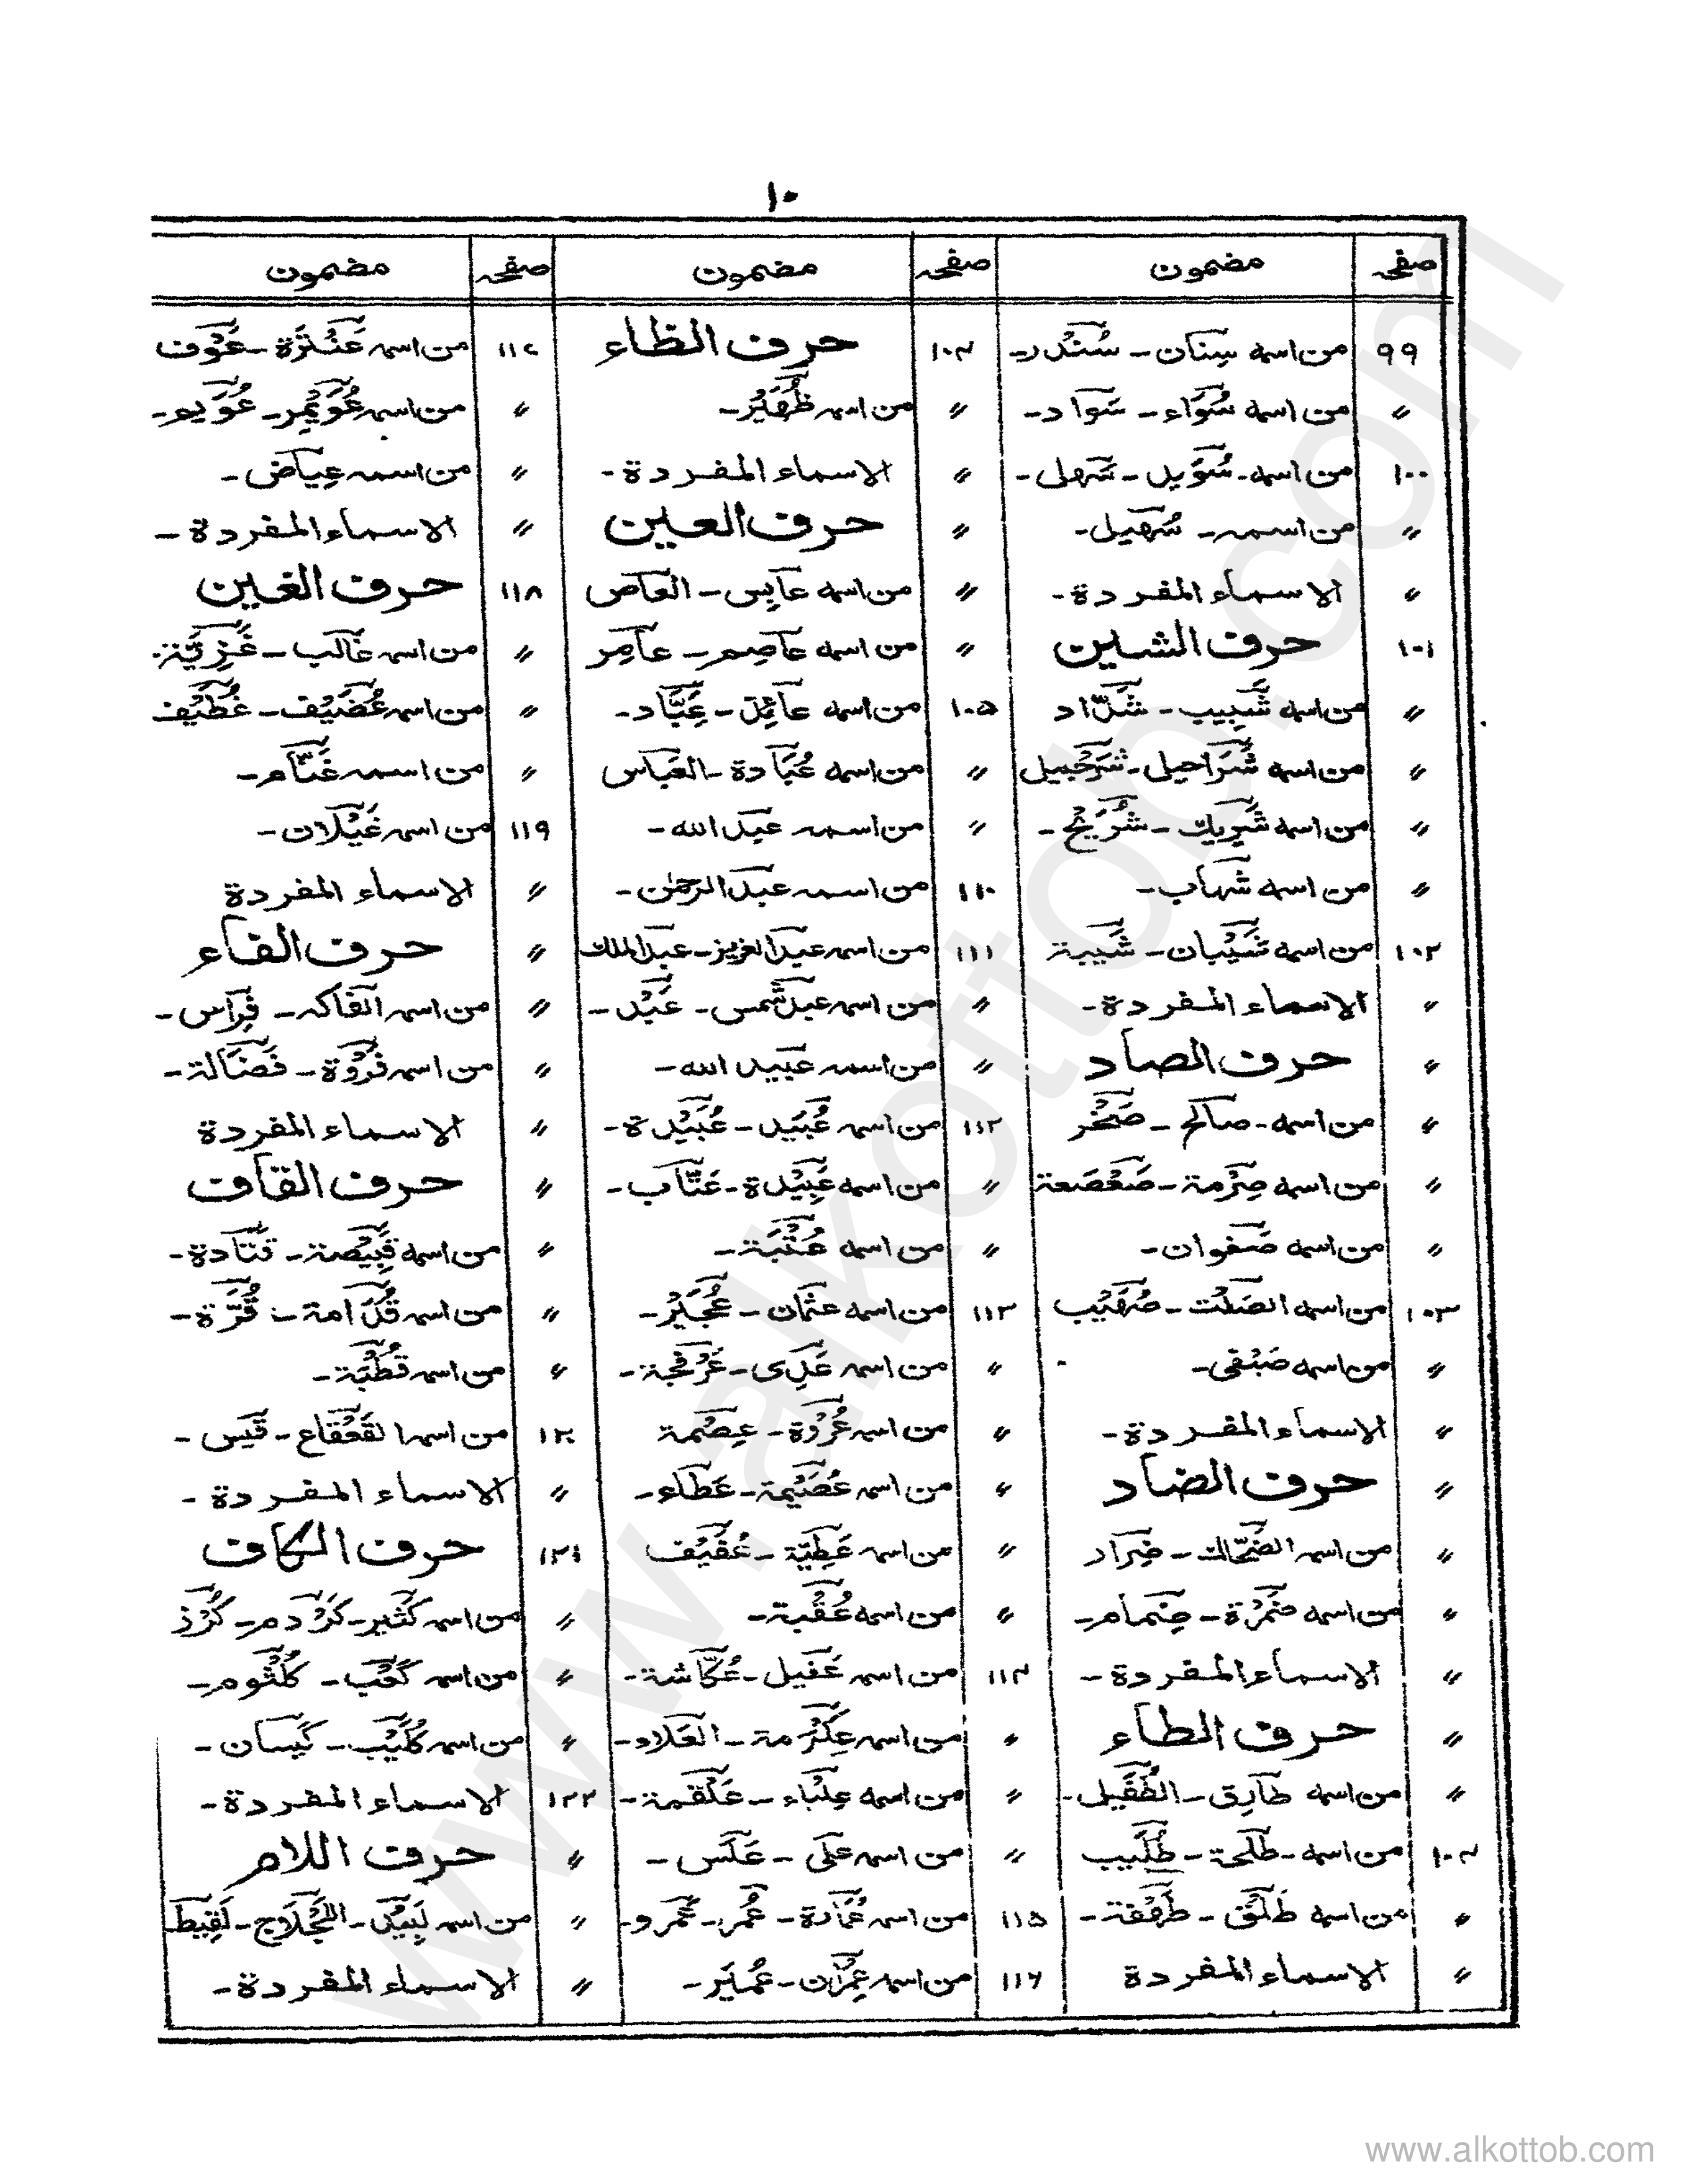 ١٠
صفحہ مضمون صفحہ مضمون صفحہ مضمون
٩٩ من اسمه سِنَان - سُنْدر -
〃 من اسمه سُوَاء - سَوَاد -
١٠٠ من اسمه - سُوَيد - سَهل -
〃 من اسمه - سُهَيل -
〃 الاسماء المفردة -
١٠١ حرف الشين
〃 من اسمه شَبِيب - شَدّاد
〃 من اسمه شَرَاحيل - شُرَحْبيل
〃 من اسمه شَرِيك - شُرَيْح -
〃 من اسمه شهاب -
١٠٢ من اسمه شَيْبان - شَيبة
〃 الاسماء المفردة -
〃 حرف الصاد
〃 من اسمه - صالح - صَخْر
〃 من اسمه صِرْمة - صَعْصَعة
〃 من اسمه صَفوان -
١٠٣ من اسمه الصَلْت - صُهَيْب
〃 من اسمه صَيْفى -
〃 الاسماء المفردة -
〃 حرف الضاد
〃 من اسمه الضَحّاك - ضِرَار
〃 من اسمه ضَمْرَة - ضِمَام -
〃 الاسماء المفردة -
〃 حرف الطاء
〃 من اسمه طَارِق - الطُفَيل -
١٠٤ من اسمه - طَلحة - طُلَيب
〃 من اسمه طَلْق - طَهْفة -
〃 الاسماء المفردة
١٠٤ حرف الظاء
〃 من اسمه ظُهَيْر -
〃 الاسماء المفردة -
〃 حرف العين
〃 من اسمه عَابِس - العَاص
〃 من اسمه عَاصِم - عَامِر
١٠٥ من اسمه عَائِذ - عَبَّاد -
〃 من اسمه عُبَادة - العَباس
〃 من اسمه عبد الله -
١١٠ من اسمه عبد الرحمٰن -
١١١ من اسمه عبد العزيز - عبد الملك
〃 من اسمه عبد شَمس - عَبْد -
〃 من اسمه عبيد الله -
١١٢ من اسمه عُبَيد - عُبَيْدة -
〃 من اسمه عَبِيْدة - عَتَّاب -
〃 من اسمه عُتْبَة -
١١٣ من اسمه عثمان - عُجَيْر -
〃 من اسمه عَدِى - عَرْفجة -
〃 من اسمه عُرْوَة - عِصْمة
〃 من اسمه عُصَيْمة - عَطَاء -
〃 من اسمه عَطِيّة - عُفَيْف
〃 من اسمه عُقْبة -
١١٤ من اسمه عَقيل - عُكّاشة -
〃 من اسمه عِكْرمة - العَلاء -
〃 من اسمه عِلْبَاء - عَلْقمة -
〃 من اسمه عَلى - عَلَس -
١١٥ من اسمه عُمَارة - عُمر - عَمرو -
١١٦ من اسمه عِمْرَان - عُمَيْر -
١١٧ من اسمه عَنْتَرَة - عَوْف
〃 من اسمه عُوَيْمِر - عُوَيم -
〃 من اسمه عِيَاض -
〃 الاسماء المفردة -
١١٨ حرف الغين
〃 من اسمه غَالب - غَزِيّة -
〃 من اسمه غُضَيْف - غُطَيْف
〃 من اسمه غَنّام -
١١٩ من اسمه غَيْلان -
〃 الاسماء المفردة
〃 حرف الفاء
〃 من اسمه الفَاكه - فِرَاس -
〃 من اسمه فَرْوَة - فَضَالة -
〃 الاسماء المفردة
〃 حرف القاف
〃 من اسمه قَبِيْصة - قتادة -
〃 من اسمه قُدَامة - قُرَّة -
〃 من اسمه قُطْبَة -
١٢٠ من اسمه القَعْقاع - قَيس -
〃 الاسماء المفردة -
١٢١ حرف الكاف
〃 من اسمه كَثير - كَرْدم - كُرْز
〃 من اسمه كَعْب - كُلْثوم -
〃 من اسمه كُلَيْب - كَيسان -
١٢٢ الاسماء المفردة -
〃 حرف اللام
〃 من اسمه لَبِيْد - اللَجْلَاج - لَقِيط
〃 الاسماء المفردة -
www.alkottob.com
www.alkottob.com